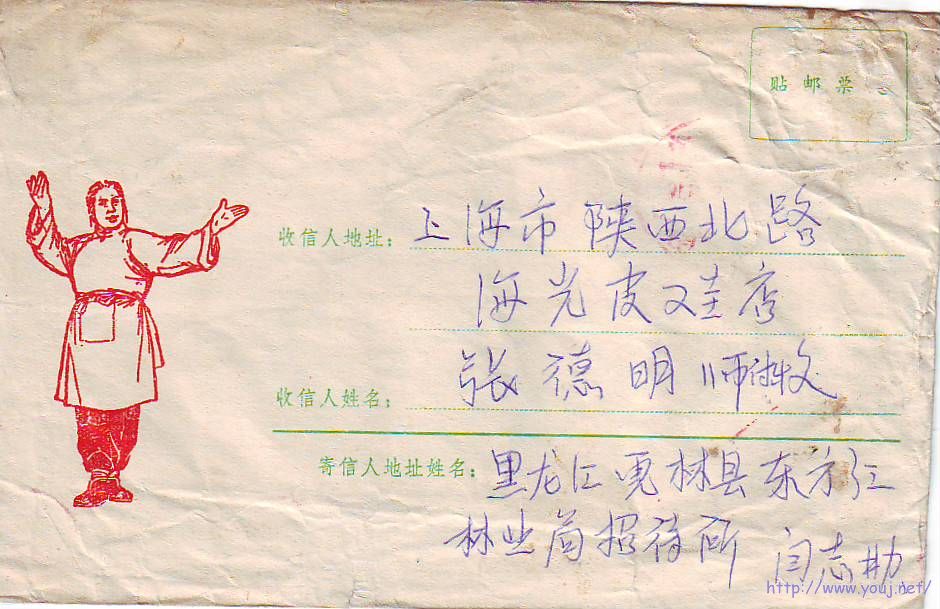 贴邮票
收信人地址：上海市陕西北路
海光皮鞋店
收信人姓名：张德明师付收
寄信人地址姓名：黑龙江虎林县东方红
林业局招待所 闫志
http://www.youj.net/